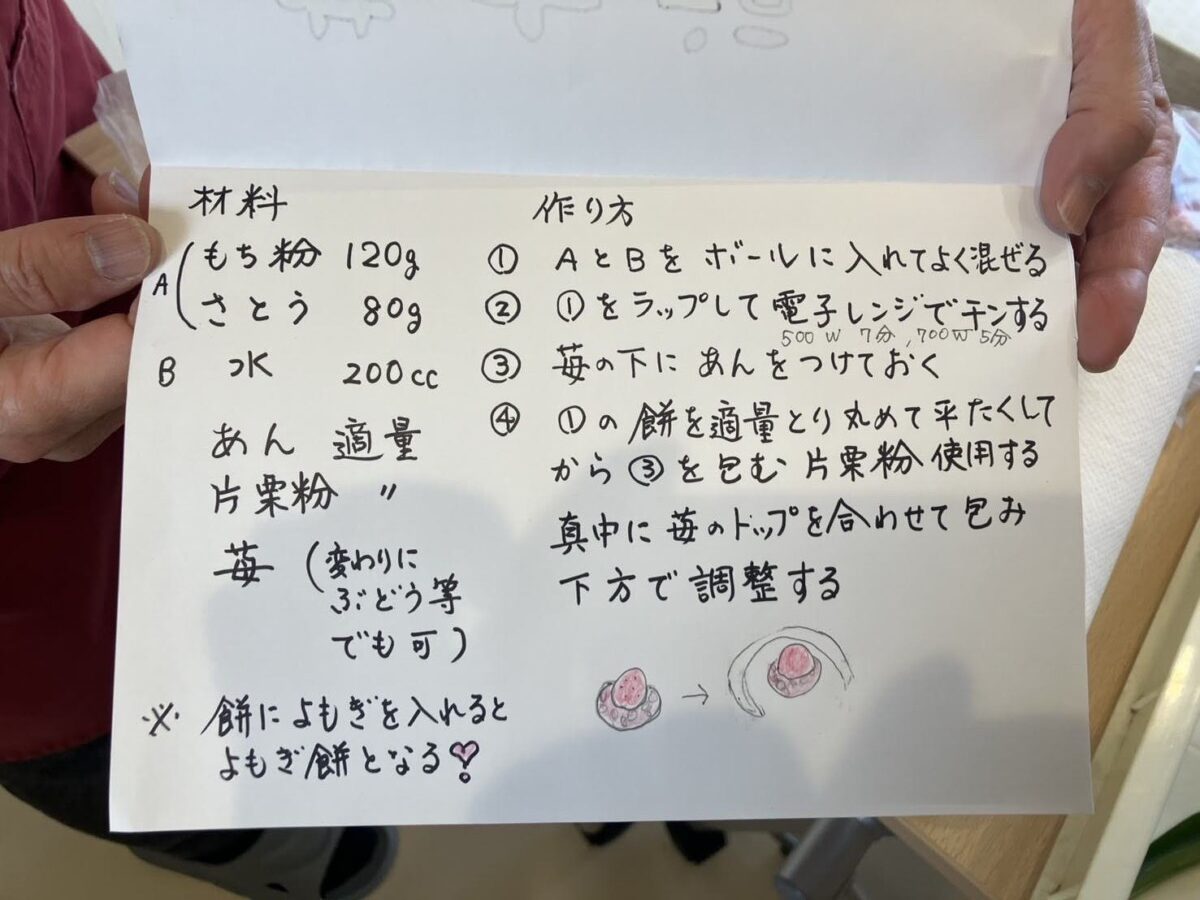 材料
A
もち粉 120g
さとう 80g
B 水 200cc
あん 適量
片栗粉 〃
苺 (変わりに
ぶどう等
でも可)
※ 餅によもぎを入れると
よもぎ餅となる
作り方
① AとBをボールに入れてよく混ぜる
② ①をラップして電子レンジでチンする
500W 7分, 700W 5分
③ 苺の下にあんをつけておく
④ ①の餅を適量とり丸めて平たくして
から③を包む 片栗粉使用する
真中に苺のトップを合わせて包み
下方で調整する